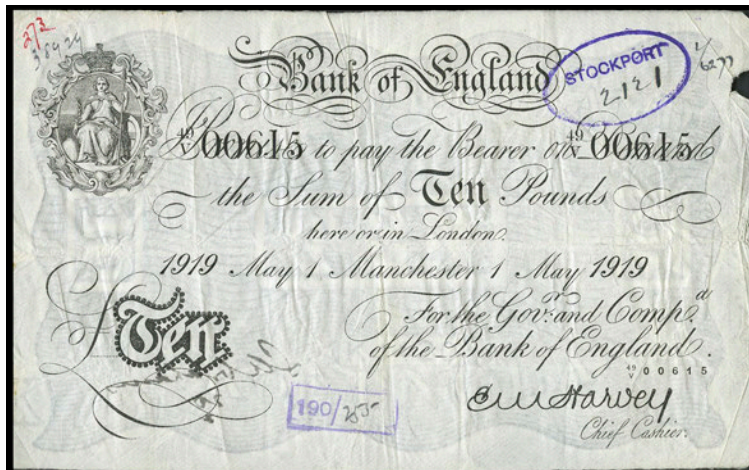 273
38924
Bank of England
STOCKPORT
2121
1/6277
49/V 00615 Promise to pay the Bearer on Demand 49/V 00615
the Sum of Ten Pounds
here or in London.
1919 May 1 Manchester 1 May 1919
For the Govr. and Compa.
of the Bank of England.
49/V 00615
£Ten
190/255
E M Harvey
Chief Cashier.